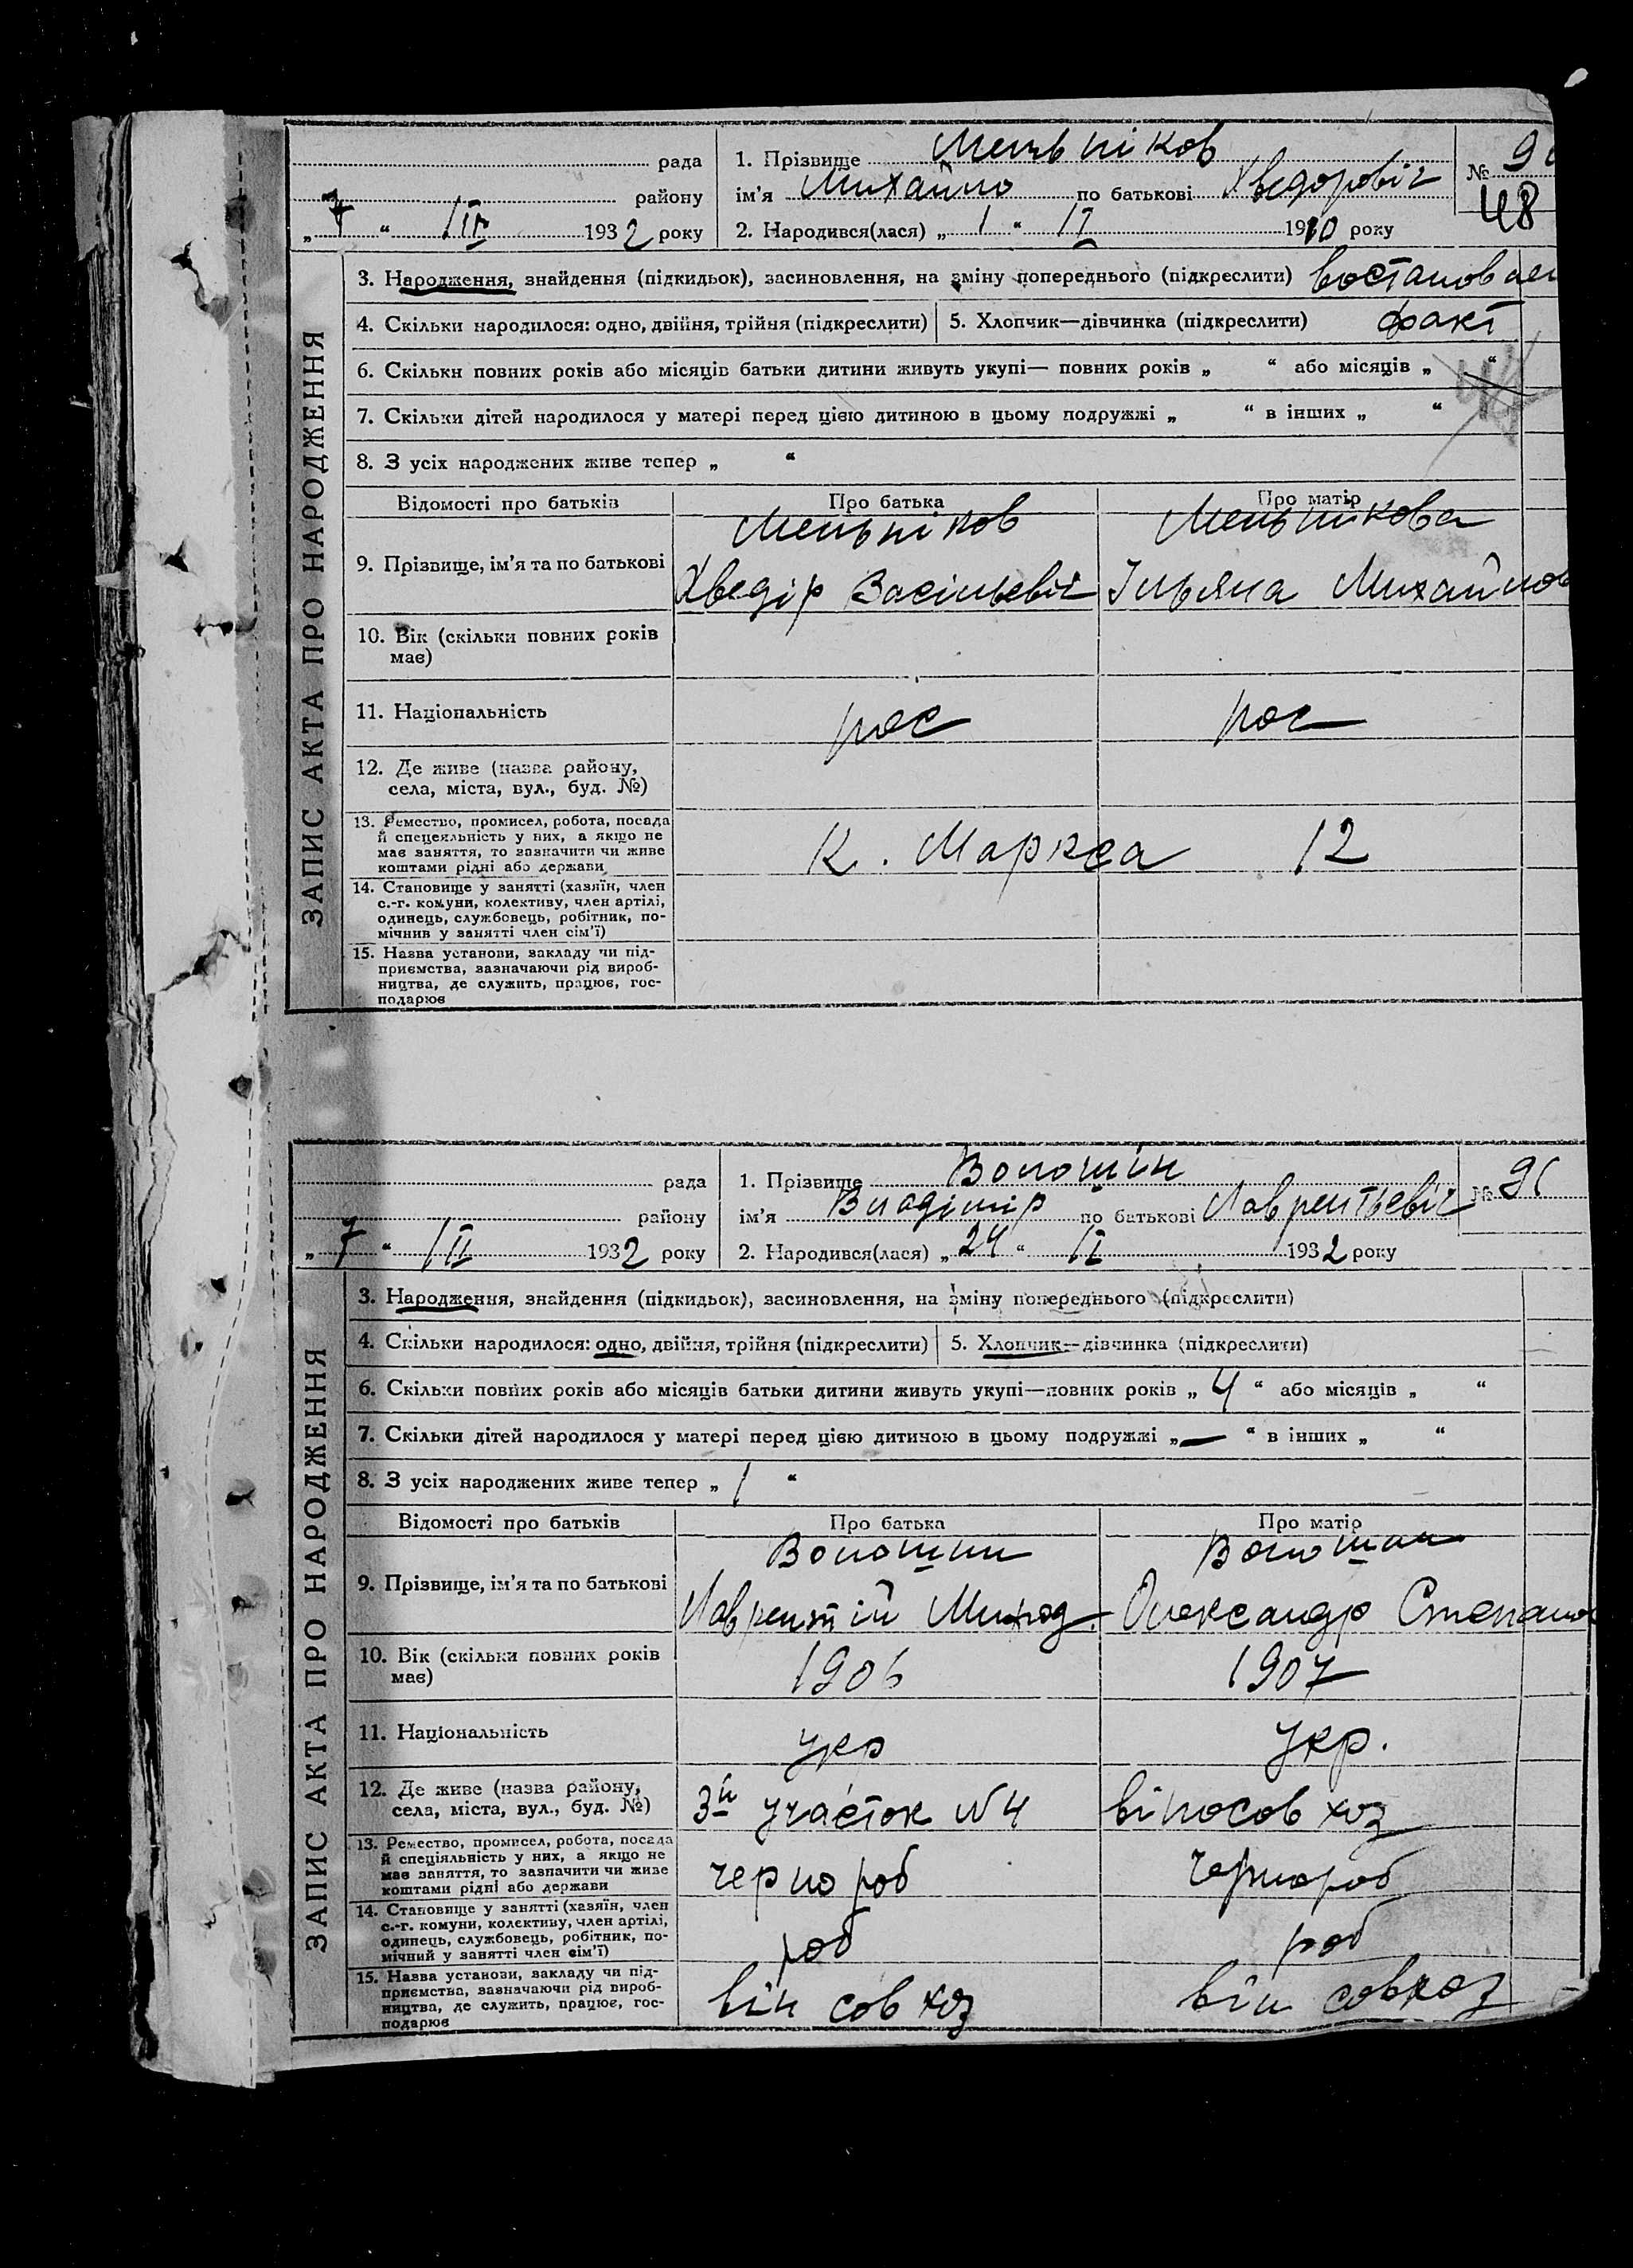 рада
району
„ 7 “ III 1932 року
1. Прізвище Мельніков
ім’я Михайло по батькові Хведоровіч
2. Народився(лася) „ 1 “ 1910 року
№ 9
48
ЗАПИС АКТА ПРО НАРОДЖЕННЯ
3. Народження, знайдення (підкидьок), засиновлення, на зміну попереднього (підкреслити) востановлен
4. Скільки народилося: одно, двійня, трійня (підкреслити) 5. Хлопчик—дівчинка (підкреслити) факт
6. Скільки повних років або місяців батьки дитини живуть укупі— повних років „ “ або місяців „ “
7. Скільки дітей народилося у матері перед цією дитиною в цьому подружжі „ “ в інших „ “
8. З усіх народжених живе тепер „ “
Відомості про батьків Про батька Про матір
Мельніков Мельнікова
9. Прізвище, ім’я та по батькові Хведір Васільевіч Ульяна Михайлов
10. Вік (скільки повних років
має)
11. Національність рос рос
12. Де живе (назва району,
села, міста, вул., буд. №)
13. Ремество, промисел, робота, посада
й спецеяльність у них, а якщо не
має заняття, то зазначити чи живе
коштами рідні або держави
К. Маркса 12
14. Становище у занятті (хазяїн, член
с.-г. комуни, колективу, член артілі,
одинець, службовець, робітник, по-
мічнив у занятті член сім’ї)
15. Назва установи, закладу чи під-
приємства, зазначаючи рід вироб-
ництва, де служить, працює, гос-
подарює
рада
району
„ 7 “ III 1932 року
1. Прізвище Волошін
ім’я Владімір по батькові Лаврентьевіч
2. Народився(лася) „ 24 “ 1932 року
№ 91
ЗАПИС АКТА ПРО НАРОДЖЕННЯ
3. Народження, знайдення (підкидьок), засиновлення, на зміну попереднього (підкреслити)
4. Скільки народилося: одно, двійня, трійня (підкреслити) 5. Хлопчик—дівчинка (підкреслити)
6. Скільки повних років або місяців батьки дитини живуть укупі—повних років „ 4 “ або місяців „ “
7. Скільки дітей народилося у матері перед цією дитиною в цьому подружжі „ — “ в інших „ “
8. З усіх народжених живе тепер „ 1 “
Відомості про батьків Про батька Про матір
Волошин Волошин
9. Прізвище, ім’я та по батькові Лаврентій Олександр Степанов
10. Вік (скільки повних років
має)
1906 1907
11. Національність укр укр.
12. Де живе (назва району,
села, міста, вул., буд. №)
3й участок N4 віносовхоз
13. Ремество, промисел, робота, посада
й спеціяльність у них, а якщо не
має заняття, то зазначити чи живе
коштами рідні або держави
чернороб чернороб
14. Становище у занятті (хазяїн, член
с.-г. комуни, колективу, член артілі,
одинець, службовець, робітник, по-
мічний у занятті член сім’ї)
роб роб
15. Назва установи, закладу чи під-
приємства, зазначаючи рід вироб-
ництва, де служить, працює, гос-
подарює
він совхоз він совхоз